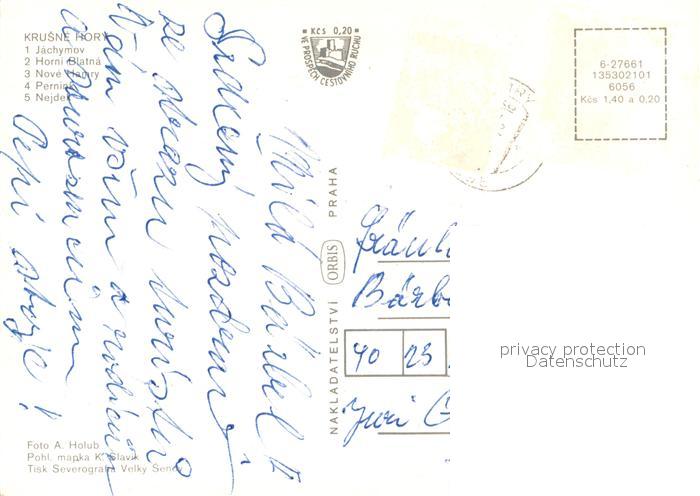 KRUŠNÉ HORY
1 Jáchymov
2 Horní Blatná
3 Nové Hamry
4 Pernink
5 Nejdek
Kčs 0,20
VE PROSPĚCH CESTOVNÍHO RUCHU
6-27661
135302101
6056
Kčs 1,40 a 0,20
Milá Bärbel!
Srdečný pozdrav
ze
Vám všem a rodičům
a
NAKLADATELSTVÍ ORBIS PRAHA
Fräul
Bärb
40 23
Juri G
privacy protection
Datenschutz
Foto A. Holub
Pohl. mapka K. Slavík
Tisk Severografia Velký Šenov